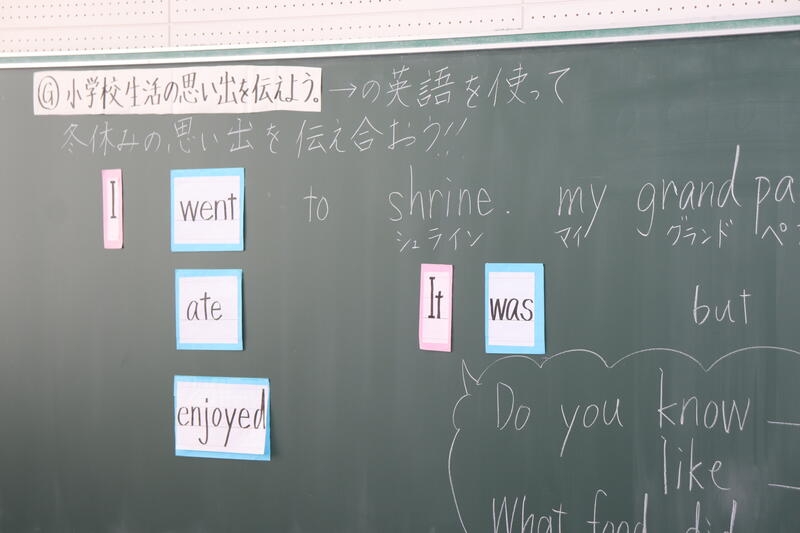 Ⓖ 小学校生活の思い出を伝えよう。→の英語を使って
冬休みの思い出を伝え合おう!!
I went to shrine. my grandpa
シュライン マイ グランド ペ
ate It was but
enjoyed
Do you know
like
What food did